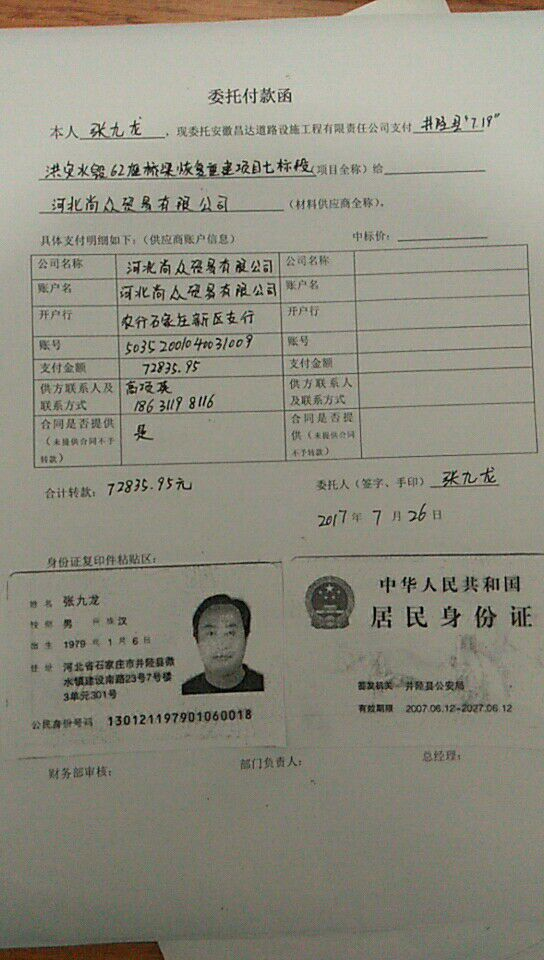 委托付款函
本人 张九龙 ,现委托安徽昌达道路设施工程有限责任公司支付 井陉县"7.19"
洪灾水毁62座桥梁恢复重建项目七标段(项目全称)给
河北尚众贸易有限公司 (材料供应商全称)。
具体支付明细如下:(供应商账户信息) 中标价:
公司名称 河北尚众贸易有限公司 公司名称
账户名 河北尚众贸易有限公司 账户名
开户行 农行石家庄新区支行 开户行
账号 50352001040031009 账号
支付金额 72835.95 支付金额
供方联系人及联系方式 高 英 18631198116 供方联系人及联系方式
合同是否提供(未提供合同不予转款) 是 合同是否提供(未提供合同不予转款)
合计转款: 72835.95元 委托人(签字、手印) 张九龙
2017 年 7 月 26 日
身份证复印件粘贴区:
姓名 张九龙
性别 男 民族 汉
出生 1979 年 1 月 6 日
住址 河北省石家庄市井陉县微
水镇建设南路23号7号楼
3单元301号
公民身份号码 130121197901060018
中华人民共和国
居民身份证
签发机关 井陉县公安局
有效期限 2007.06.12-2027.06.12
财务部审核: 部门负责人: 总经理: